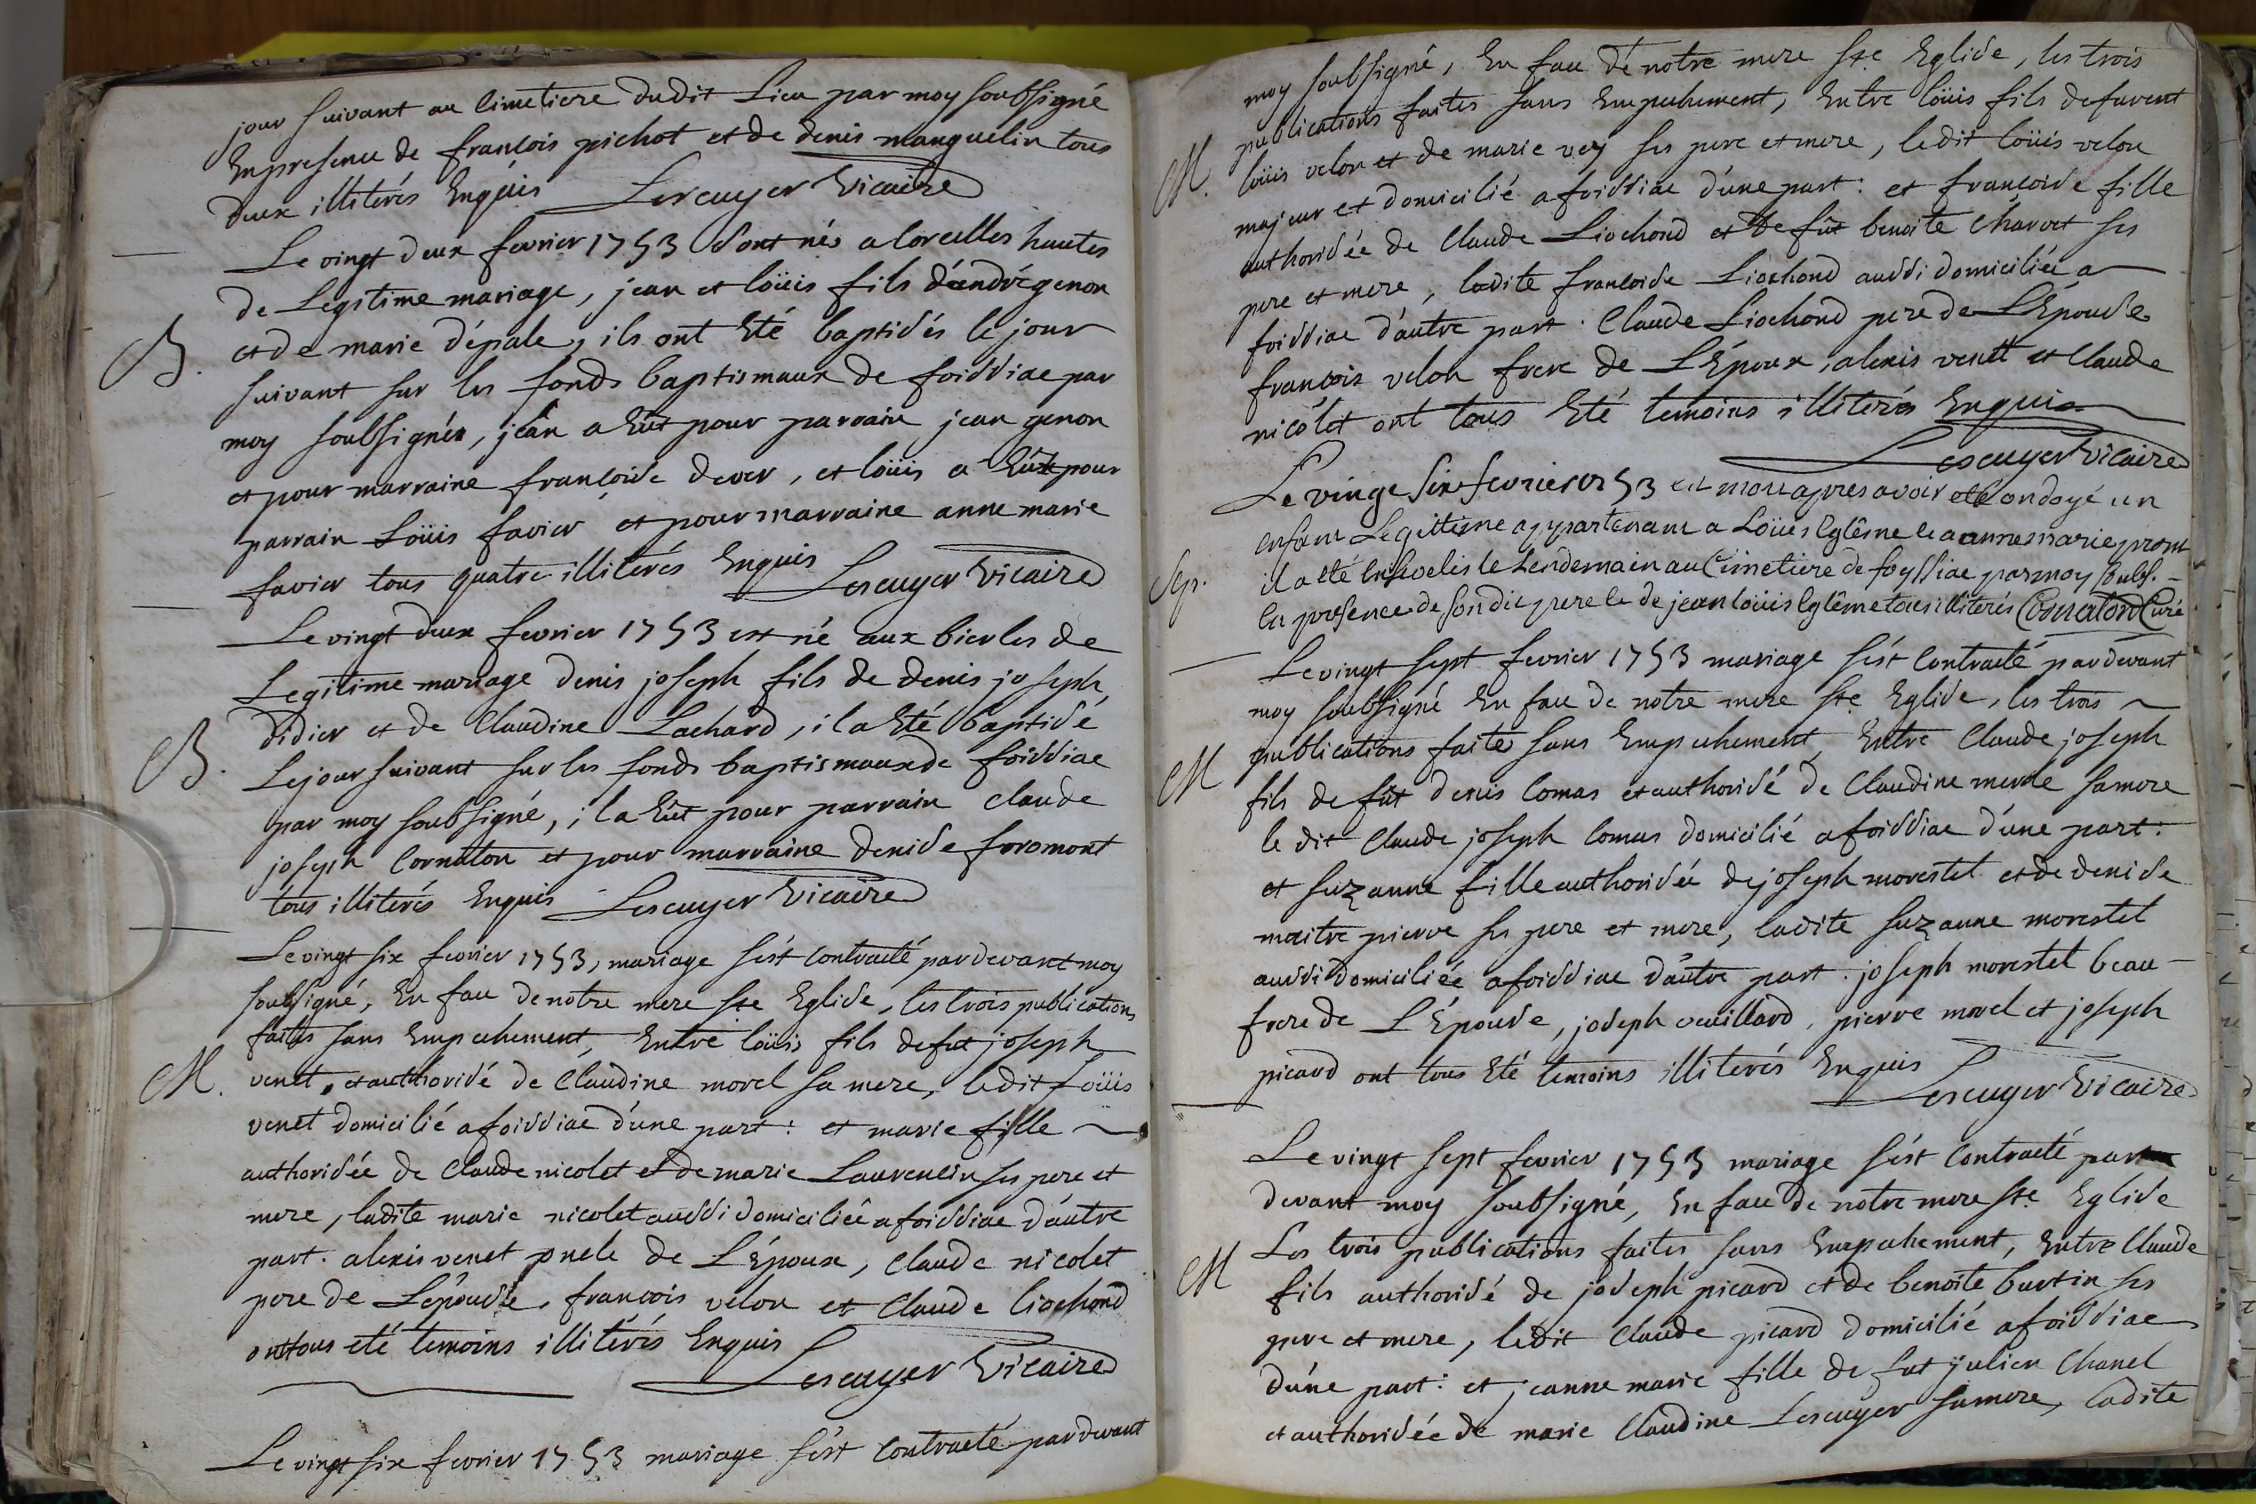 jour suivant au cimetiere dudit Lieu par moy soubsigné
En presence de francois pichot et de denis manguelin tous
deux illiterés Enquis Lescuyer Vicaire
Le vingt deux fevrier 1753 sont nés a lorcelles hautes
de Legitime mariage, jean et loüis fils d'andré genon
B. et de marie dépale, ils ont Eté baptisés le jour
suivant sur les fonds baptismaux de foissiac par
moy soubsigné, jean a Eût pour parrain jean genon
et pour marraine francoise dever, et loüis a Eût pour
parrain Loüis favier et pour marraine anne marie
favier tous quatre illiterés Enquis Lescuyer Vicaire
Le vingt deux fevrier 1753 est né aux bierles de
Legitime mariage denis joseph fils de denis joseph
didier et de Claudine Lachard, il a Eté baptisé
B. Le jour suivant sur les fonds baptismaux de foissiac
par moy soubsigné, il a Eût pour parrain Claude
joseph Cornaton et pour marraine denise foromont
tous illiterés Enquis Lescuyer Vicaire
Le vingt six fevrier 1753, mariage s'est Contracté par devant moy
soubsigné, En face de notre mere Ste Eglise, les trois publications
faites sans Empechement, Entre loüis fils de fut joseph
M. venet, et authorisé de Claudine morel sa mere, ledit Loüis
venet domicilié a foissiac d'une part: et marie fille
authorisée de Claude nicolet et de marie Laurencin ses pere et
mere, ladite marie nicolet aussi domiciliée a foissiac d'autre
part. alexis venet oncle de L'Epoux, Claude nicolet
pere de L'epouse, francois velon et Claude liochond
ont tous eté temoins illiterés Enquis
Lescuyer Vicaire
Le vingt six fevrier 1753 mariage s'est Contracté par devant
moy soubsigné, En face de notre mere Ste Eglise, les trois
publications faites sans Empechement, Entre loüis fils defurent
M. loüis velon et de marie vey ses pere et mere, ledit loüis velon
majeur et domicilié a foissiac d'une part: et francoise fille
authorisée de Claude Liochond et de fût benoite Charvet ses
pere et mere, ladite francoise Liochond aussi domiciliée a
foissiac d'autre part. Claude Liochond pere de L'Epouse
francois velon frere de L'Epoux, alexis venet et Claude
nicolet ont tous Eté temoins illiterés Enquis
Lescuyer Vicaire
Le vingt Six fevrier 1753 est mort apres avoir eté ondoyé un
enfant Legittime appartenant a Loüis Eglême et a anne marie prost
Sep. il a eté Ensevelis le Lendemain au Cimetiere de foyssiac par moy soubs.
En presence de son dit pere et de jean loüis Eglême tous illiterés Cornaton Curé
Le vingt sept fevrier 1753 mariage s'est Contracté par devant
moy soubsigné En face de notre mere Ste Eglise, les trois
publications faites sans Empechement, Entre Claude joseph
M fils de fût denis Comas et authorisé de Claudine merle sa mere
le dit Claude joseph Comas domicilié a foissiac d'une part:
et suzanne fille authorisée de joseph morestel et de denise
maitre pierre ses pere et mere, ladite suzanne morestel
aussi domiciliée a foissiac d'autre part. joseph morestel beau
frere de L'Epouse, joseph veuillard, pierre morel et joseph
picard ont tous Eté temoins illiterés Enquis
Lescuyer Vicaire
Le vingt sept fevrier 1753 mariage s'est Contracté par
devant moy soubsigné, En face de notre mere Ste Eglise
Les trois publications faites sans Empechement, Entre Claude
M fils authorisé de joseph picard et de benoite burtin ses
pere et mere, ledit Claude picard domicilié a foissiac
d'une part: et jeanne marie fille de fut julien Chanel
et authorisée de marie Claudine Lescuyer sa mere, ladite